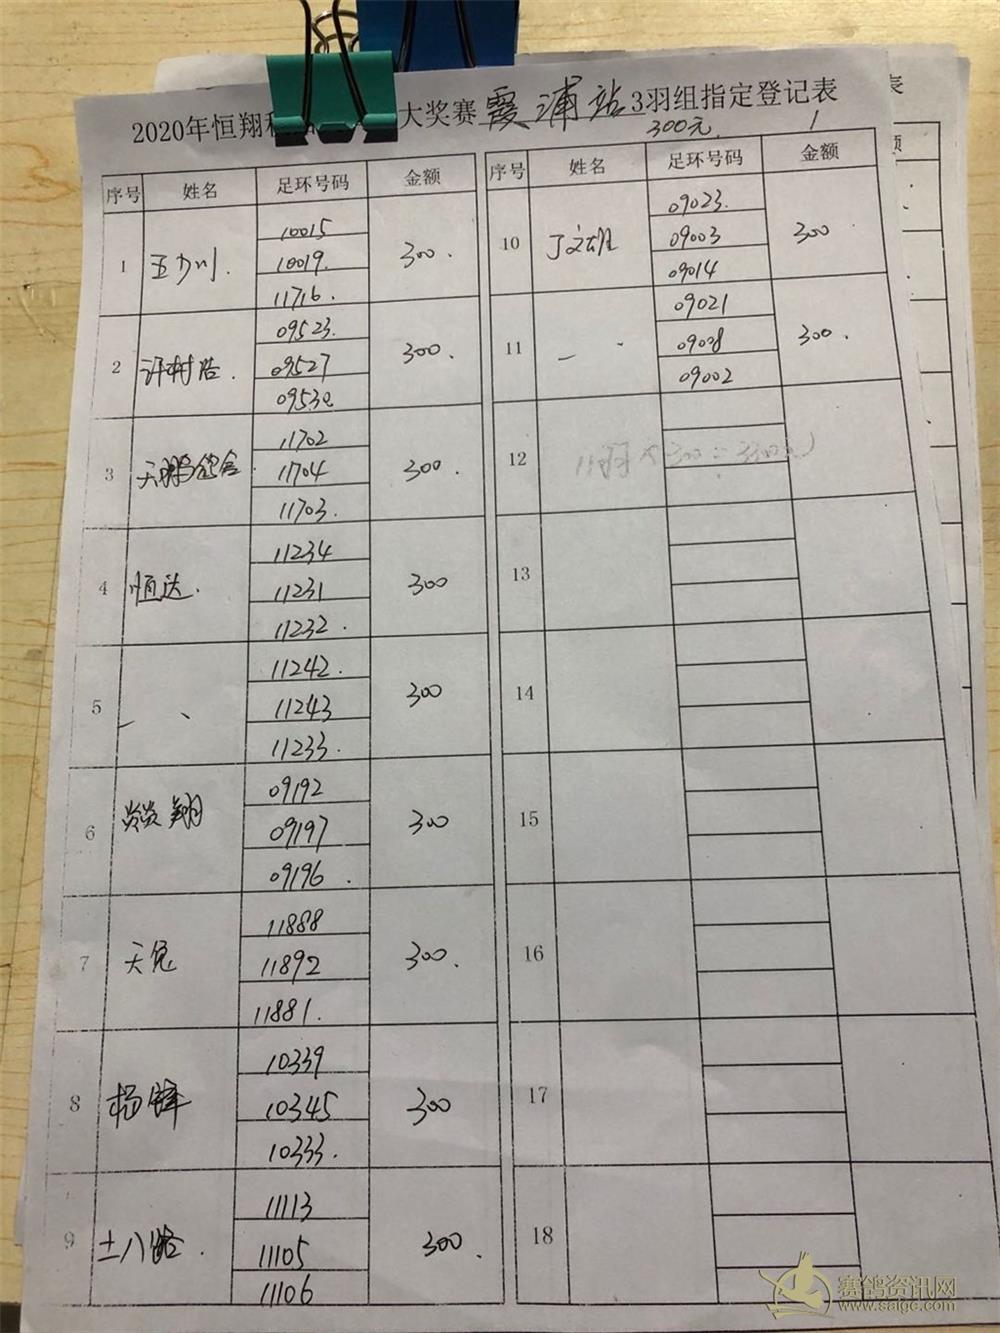 2020年恒翔 大奖赛霞浦站3羽组指定登记表
300元 1
序号 姓名 足环号码 金额
1 王少川. 10015 300.
10019.
11716.
2 许树浩. 09523. 300.
09527
0953
3 天鹏鸽舍. 11702 300.
11704
11703.
4 恒达. 11234 300
11231
11232.
5 11242. 300
11243
11233.
6 炎炎翔 09192 300
09197
09196.
7 天兔 11888 300.
11892
11881.
8 杨锋 10339 300
10345
10333.
9 土八路. 11113 300.
11105
11106
序号 姓名 足环号码 金额
10 丁文雄 09023. 300
09003
09014
11 09021 300.
09008
09002
12 11羽×300=3300元
13
14
15
16
17
18
赛鸽资讯网
www.saigc.com